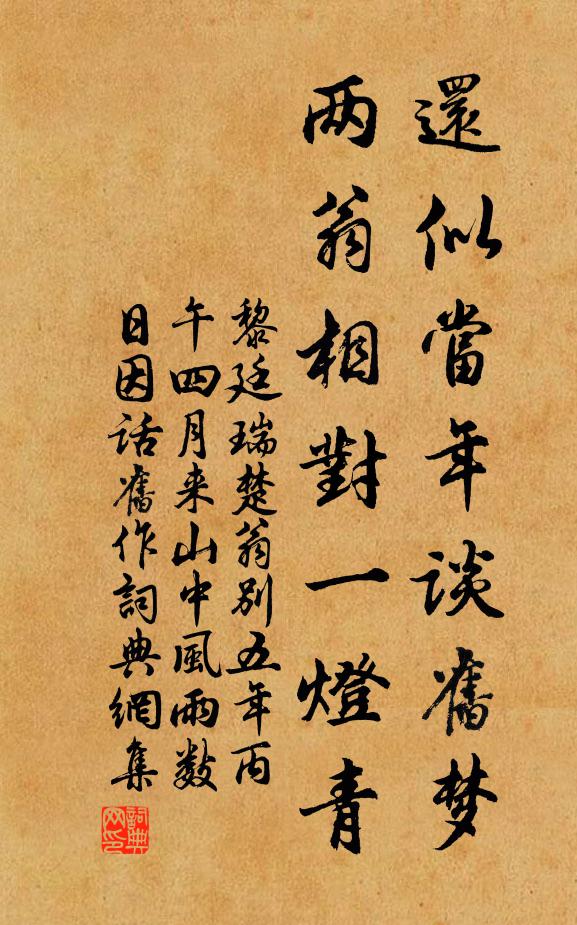 還似當年談舊梦
两翁相對一燈青
黎廷瑞楚翁别五年丙
午四月来山中風雨数
日因话舊作詞典網集
詞典网印